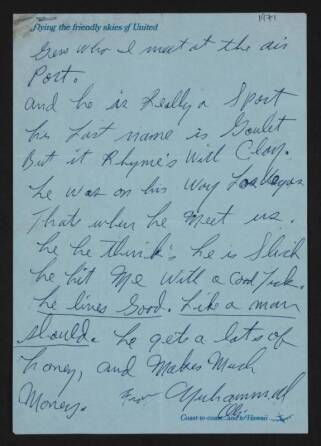 1971
flying the friendly skies of United
Gess who I meet at the air
Port.
and he is Really a Sport
his Last name is Goulet
But it Rhyme's With Clay.
he was on his way Las Vegas
Thats when he Meet us.
he he think's he is Slick
he hit Me With a Card Trick.
he lives Good. Like a man
should. he gets a lots of
honey, and Makes Much
Money. From Muhammad
Ali
Coast to coast and to Hawaii